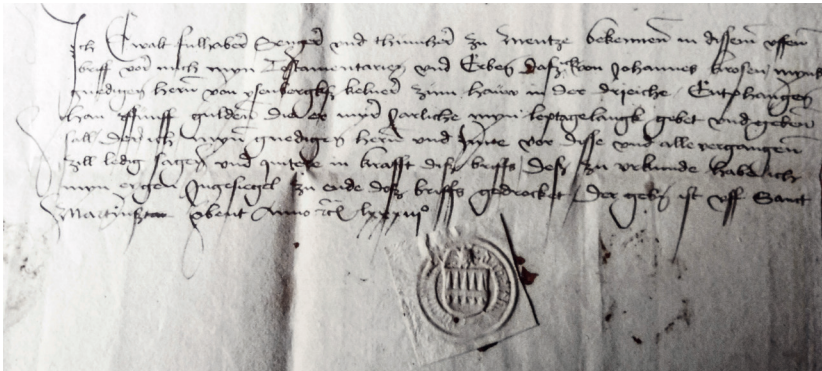 Ich Ewalt fulhaber Senger und thumher zu Mentze bekennen in dissem uffen
briff vor mich myn Testamentarien und Erben daß von Johannes myns
gnedigen hern von ysenbergkß kelner zum hain in der drieiche Entphangen
han funff gulden die er myr Jarliche myn leptagelangk gebet und geben
sall den ich myn gnedigen hern und vor disse und alle vergangen
zill ledig sagen und quitere in krafft diß briffs deß zu urkunde hab ich
myn eygen Ingesiegel zu ende deß briffs gedrocket der geben ist uff Sanct
Martinßtag obent Anno lxxxiii°